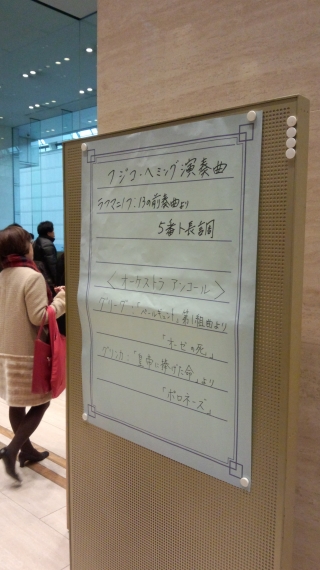 フジコ・ヘミング演奏曲
ラフマニノフ:13の前奏曲より
5番ト長調
〈オーケストラ アンコール〉
グリーグ:「ペールギュント」第1組曲より
「オーゼの死」
グリンカ:「皇帝に捧げた命」より
「ポロネーズ」